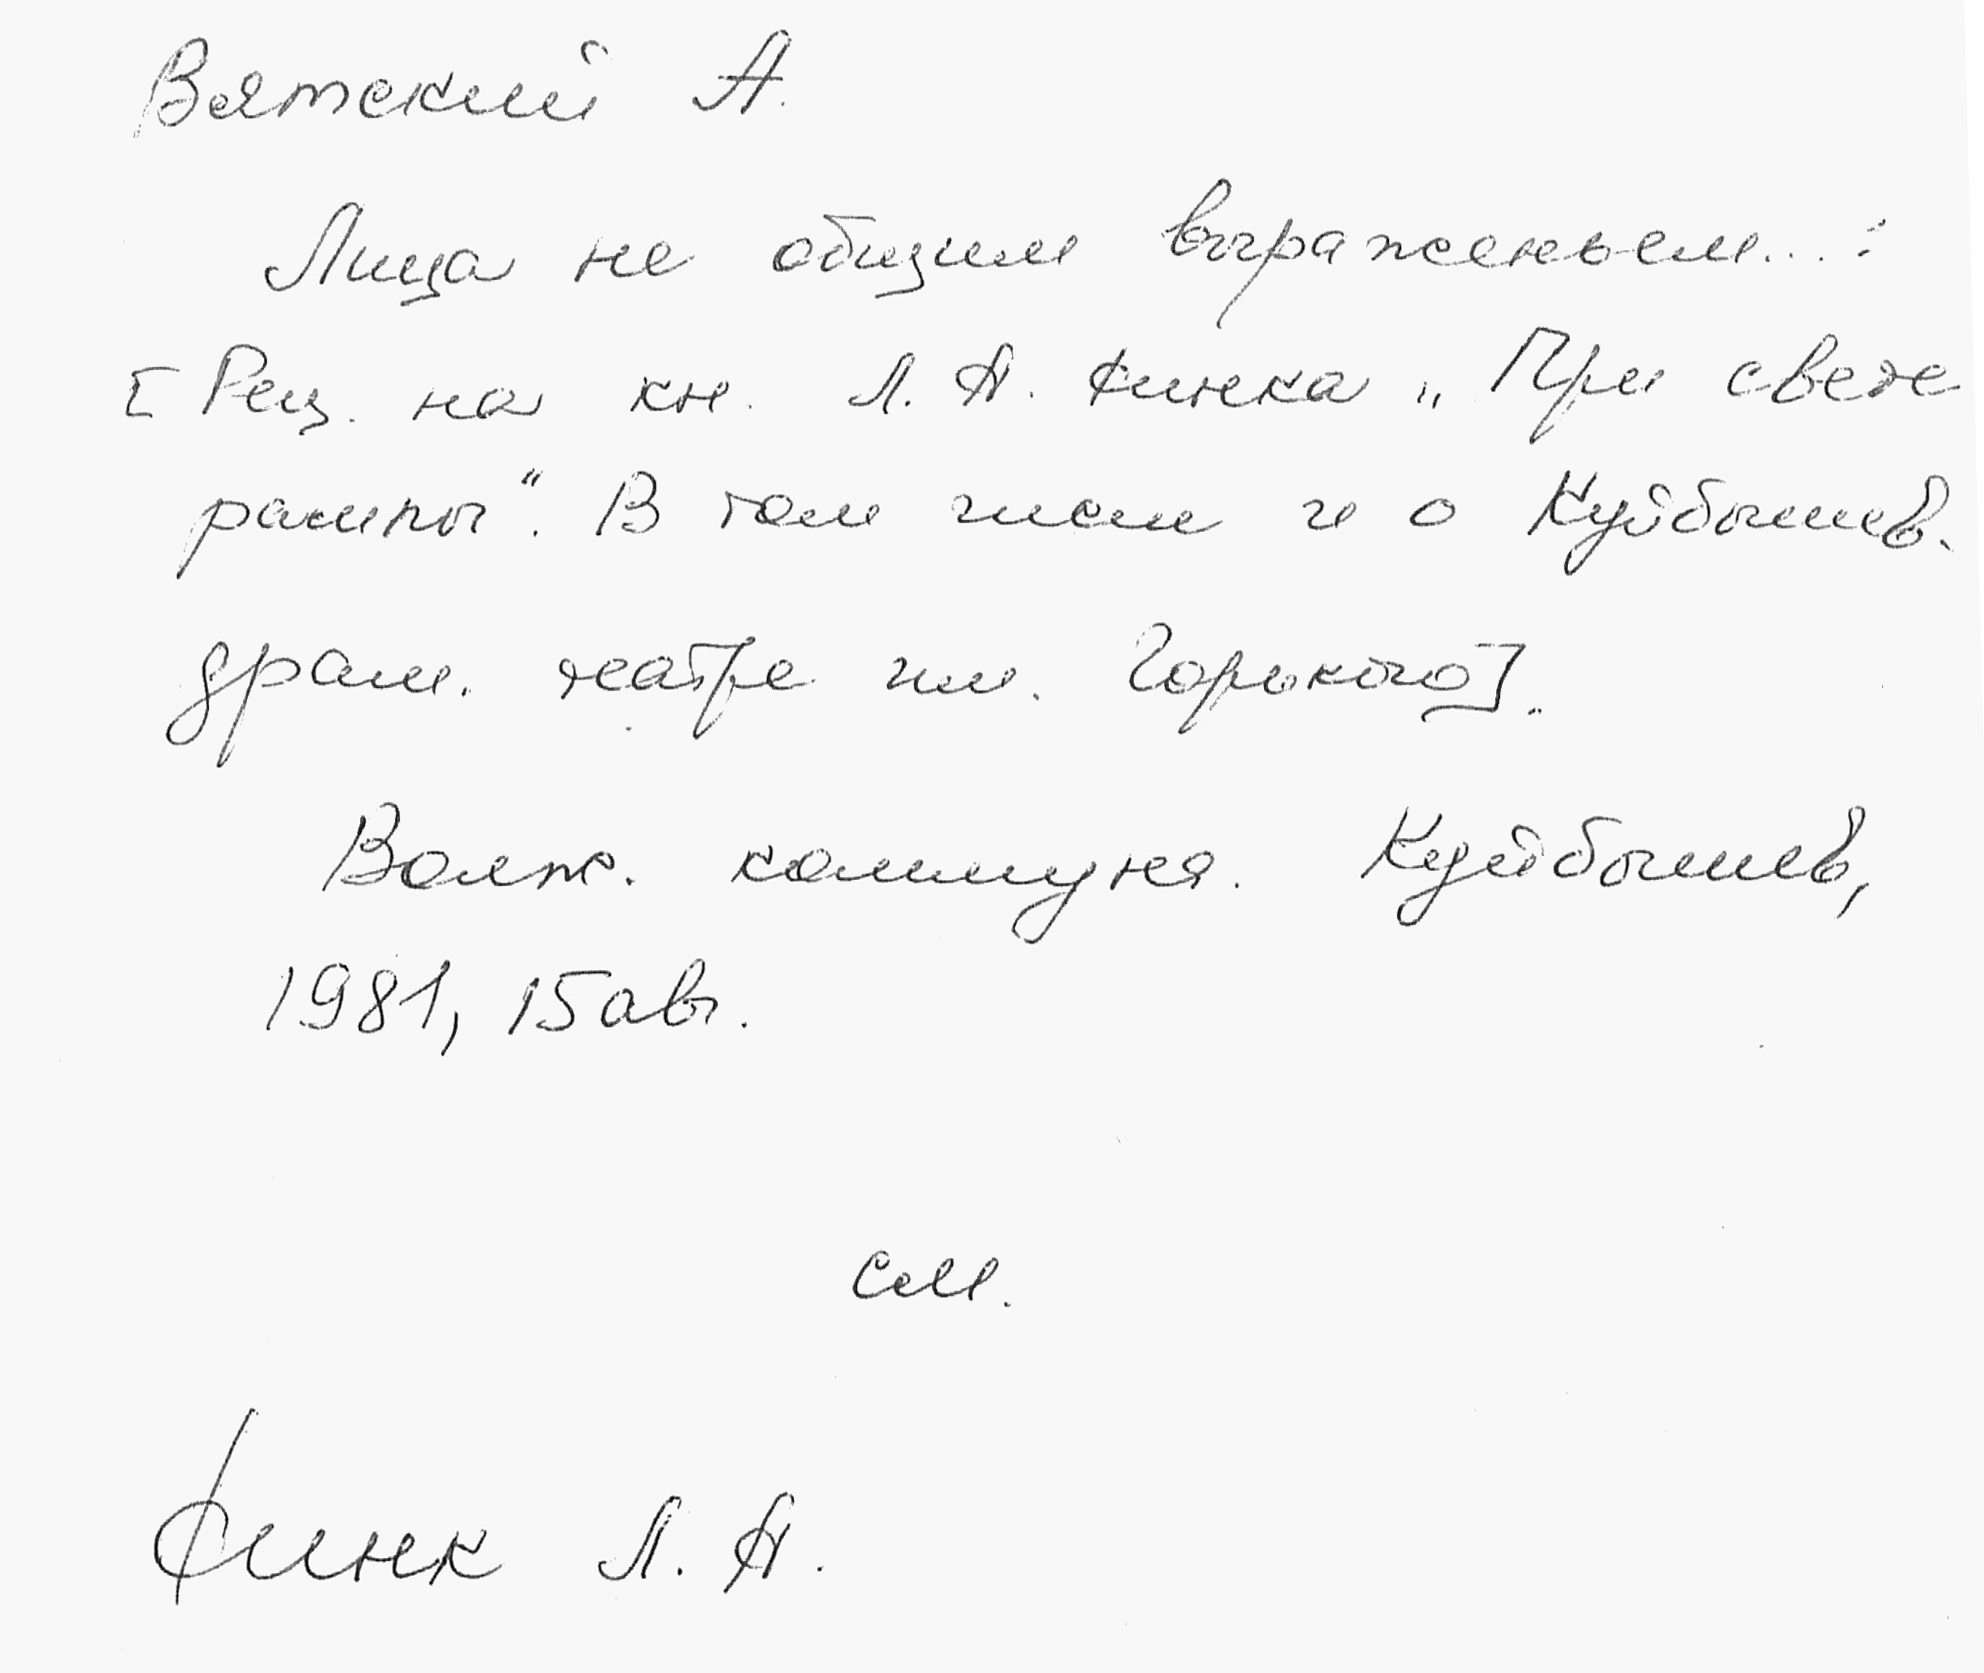 Вятский А.
Лица не общим выраженьем... :
[Рец. на кн. Л. А. Финка „При свете
рампы“. В том числе и о Куйбышев.
драм. театре им. Горького].
Волж. коммуна. Куйбышев,
1981, 15 авг.
см.
Финк Л. А.